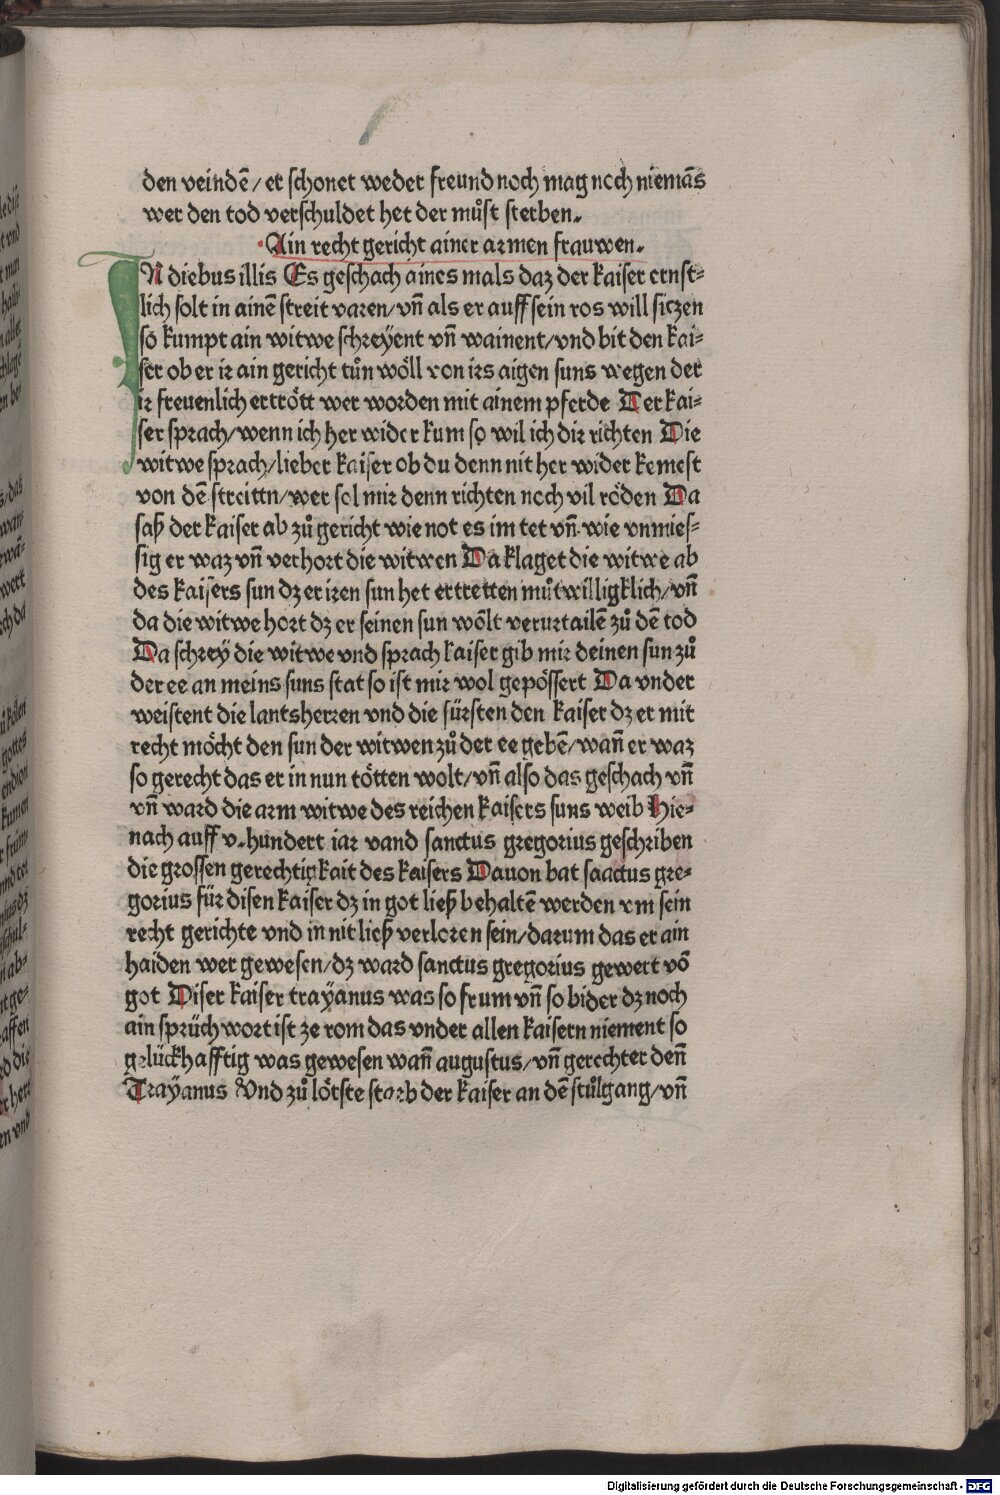 den veindē/ er schonet weder freund noch mag noch niemās
wer den tod verschuldet het der můst sterben.
Ain recht gericht ainer armen frauwen.
IN diebus illis Es geschach aines mals daz der kaiser ernst⸗
lich solt in ainē streit varen/ vn̄ als er auff sein ros will siczen
so kumpt ain witwe schreÿent vn̄ wainent/ vnd bit den kai⸗
ser ob er ir ain gericht tůn wöll von irs aigen suns wegen der
ir freuenlich ertrött wer worden mit ainem pferde Der kai⸗
ser sprach/ wenn ich her wider kum so wil ich dir richten Die
witwe sprach/ lieber kaiser ob du denn nit her wider kemest
von dē streittn/ wer sol mir denn richten noch vil röden Da
saß der kaiser ab zů gericht wie not es im tet vn̄ wie vnmies⸗
sig er waz vn̄ verhort die witwen Da klaget die witwe ab
des kaisers sun dz er iren sun het ertretten můtwilligklich/ vn̄
da die witwe hort dz er seinen sun wölt verurtailē zů dē tod
Da schreÿ die witwe vnd sprach kaiser gib mir deinen sun zů
der ee an meins suns stat so ist mir wol gepössert Da vnder
weistent die lantsherren vnd die fürsten den kaiser dz er mit
recht möcht den sun der witwen zů der ee gebē/ wan̄ er waz
so gerecht das er in nun tötten wolt/ vn̄ also das geschach vn̄
vn̄ ward die arm witwe des reichen kaisers suns weib Hie⸗
nach auff v. hundert iar vand sanctus gregorius geschriben
die grossen gerechtigkait des kaisers Dauon bat saactus gre⸗
gorius für disen kaiser dz in got ließ behaltē werden vm sein
recht gerichte vnd in nit ließ verloren sein/ darum das er ain
haiden wer gewesen/ dz ward sanctus gregorius gewert vō
got Diser kaiser trayanus was so frum vn̄ so bider dz noch
ain sprüch wort ist ze rom das vnder allen kaisern niement so
gelückhafftig was gewesen wan̄ augustus/ vn̄ gerechter den̄
Trayanus Vnd zů lötste starb der kaiser an dē stůlgang/ vn̄
Digitalisierung gefördert durch die Deutsche Forschungsgemeinschaft - DFG